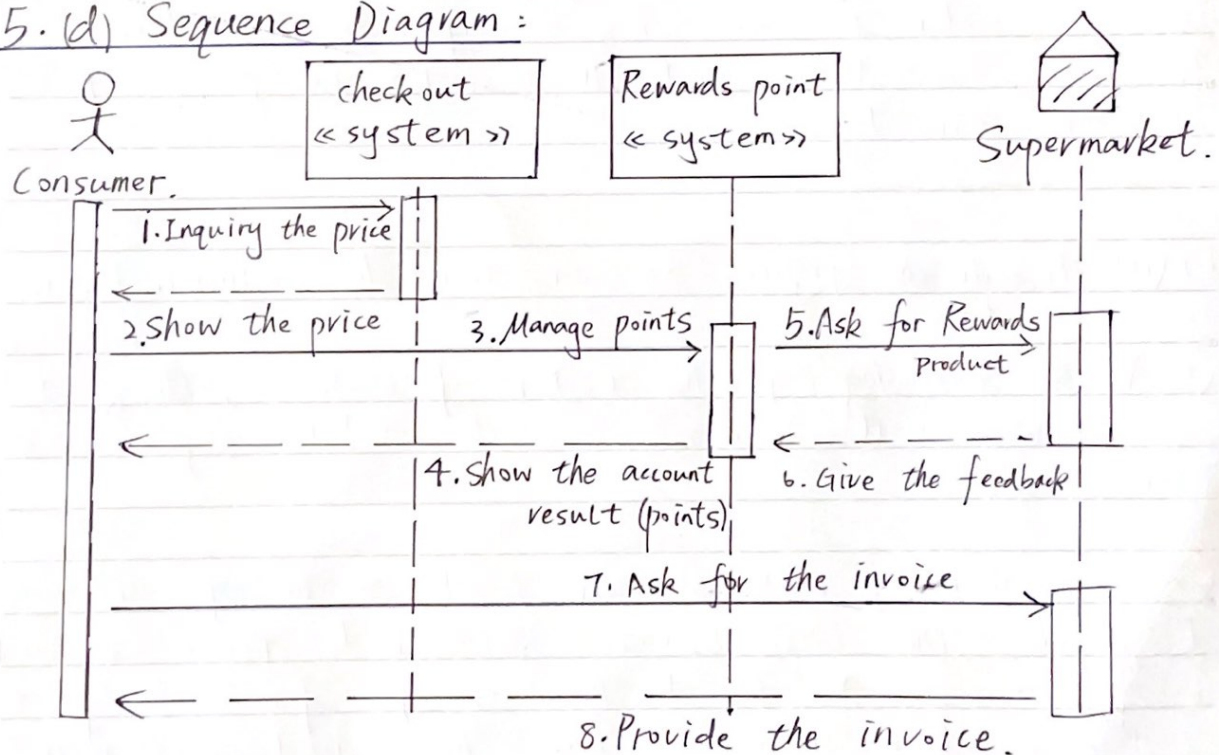 5. (d) Sequence Diagram :
check out
« system »
Rewards point
« system »
Supermarket.
Consumer.
1. Inquiry the price
2. Show the price
3. Manage points
5. Ask for Rewards
Product
4. Show the account
result (points)
6. Give the feedback
7. Ask for the invoice
8. Provide the invoice.